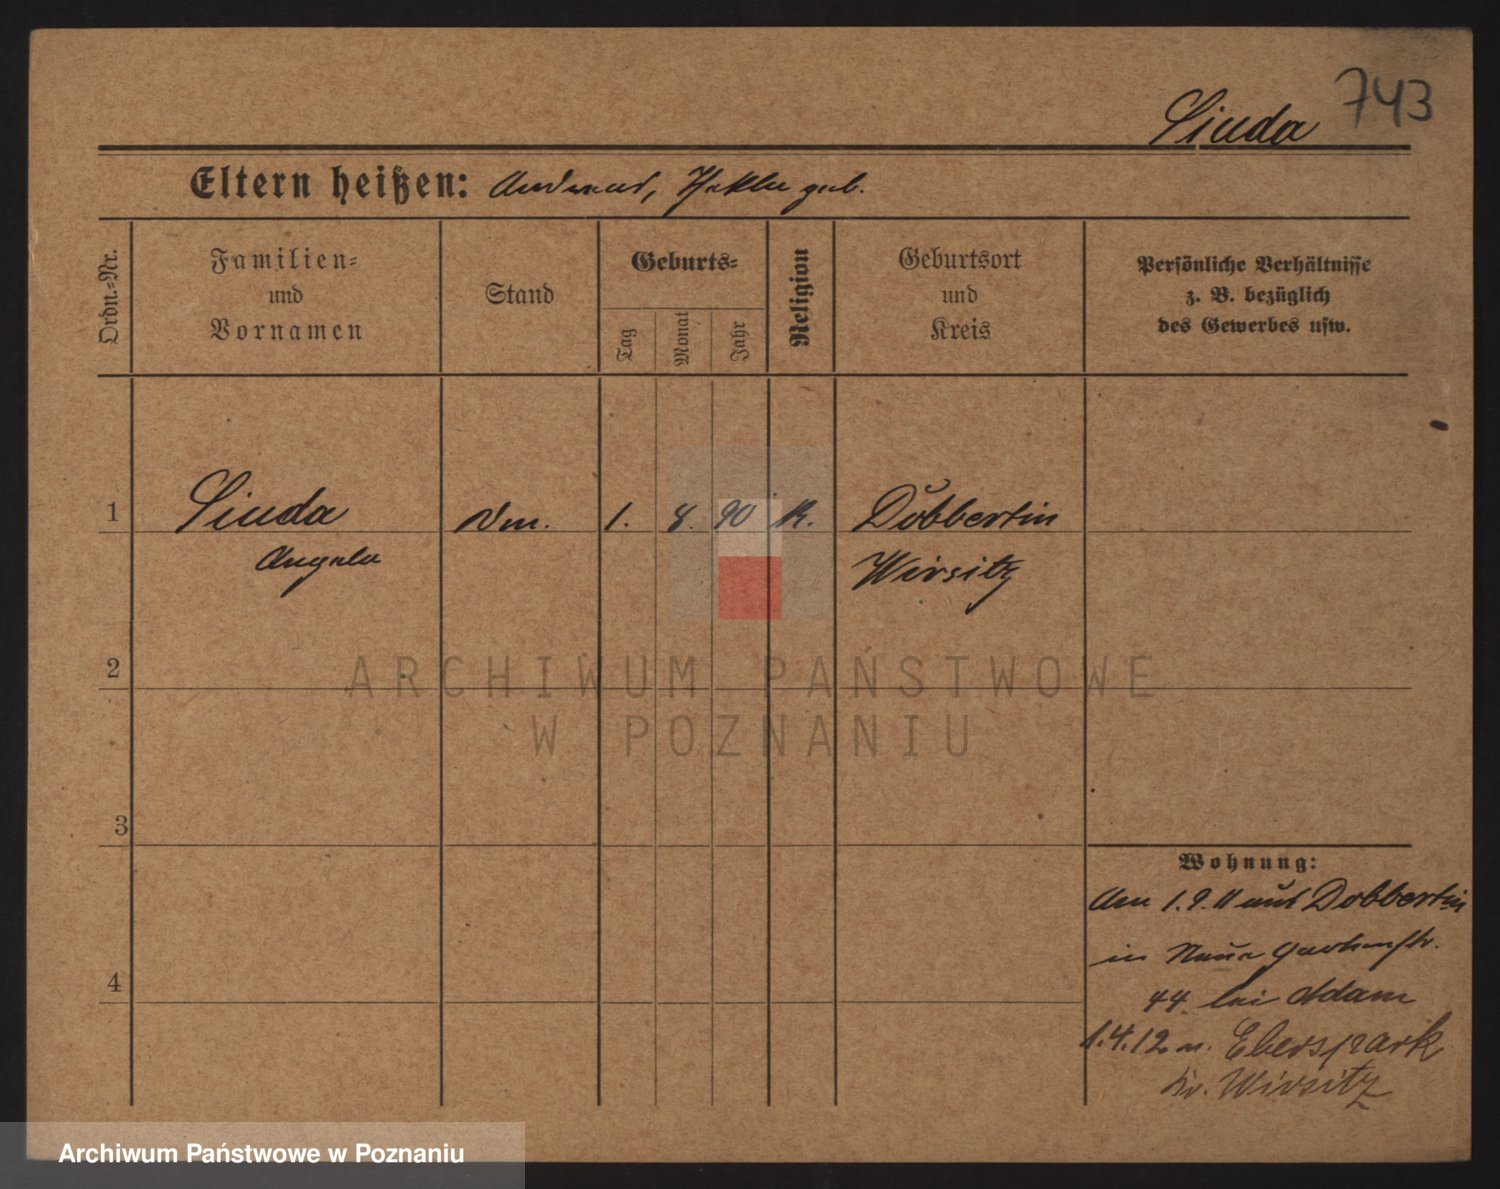 743
Siuda
Eltern heißen: Andreas, Thekla geb.
Ordn.=Nr.
Familien=
und
Vornamen
Stand
Geburts=
Tag
Monat
Jahr
Religion
Geburtsort
und
Kreis
Persönliche Verhältnisse
z. B. bezüglich
des Gewerbes usw.
1 Siuda 1. 8. 90 K. Dobbertin
Angela Wirsitz
2
3
4
Wohnung:
Am 1.9.11 aus Dobbertin
in Neue Gartenstr.
44 bei Adam
1.4.12 n. Eberspark
Kr. Wirsitz
ARCHIWUM PAŃSTWOWE
W POZNANIU
Archiwum Państwowe w Poznaniu